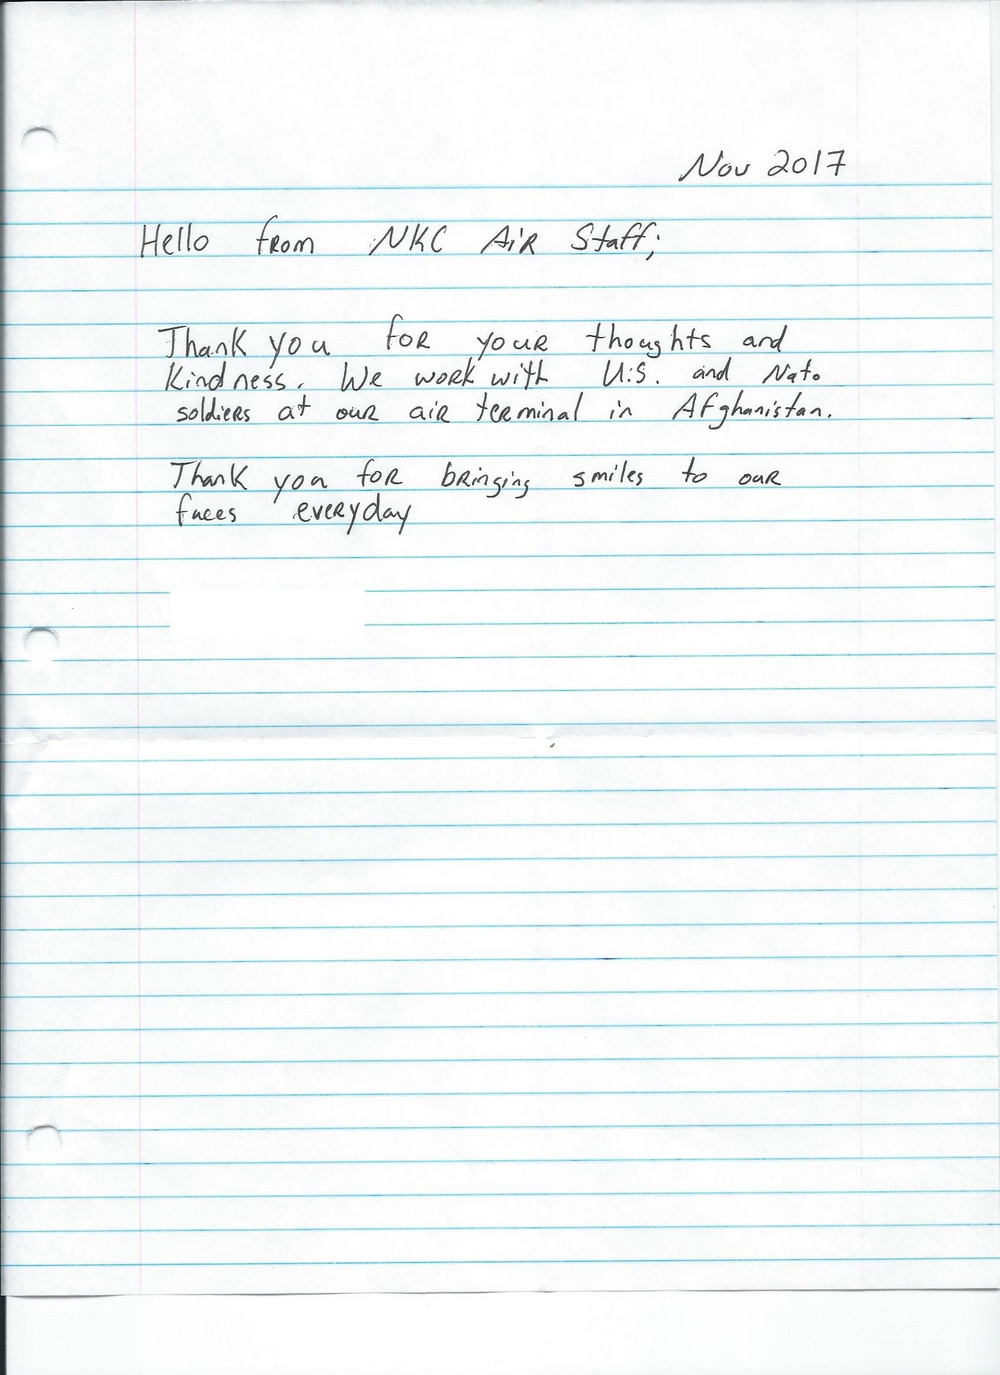 Nov 2017
Hello from NKC Air Staff;
Thank you for your thoughts and
kindness. We work with U.S. and Nato
soldiers at our air terminal in Afghanistan.
Thank you for bringing smiles to our
faces everyday